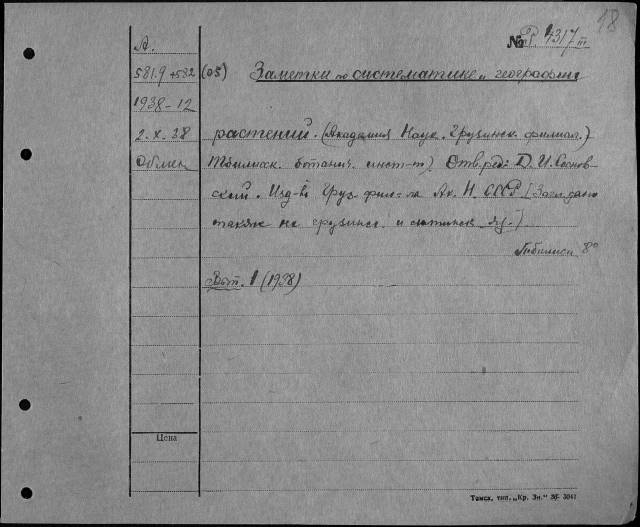 18
№ Р. 4317 III
А.
581.9+582 (05) Заметки по систематике и географии
1938-12
2-X-38 растений. (Академия Наук. Грузинск. филиал.)
Обмен Тбилисск. ботанич. инст-т) Отв. ред: Д. И. Соснов-
ский. Изд-во Груз. фил-ла Ак. Н. СССР. [Загл. дано
также на грузинс. и латинск. яз.]
Тбилиси 8°
Вып. 1 (1938)
Цена
Томск, тип. „Кр. Зн." Зб. 3041